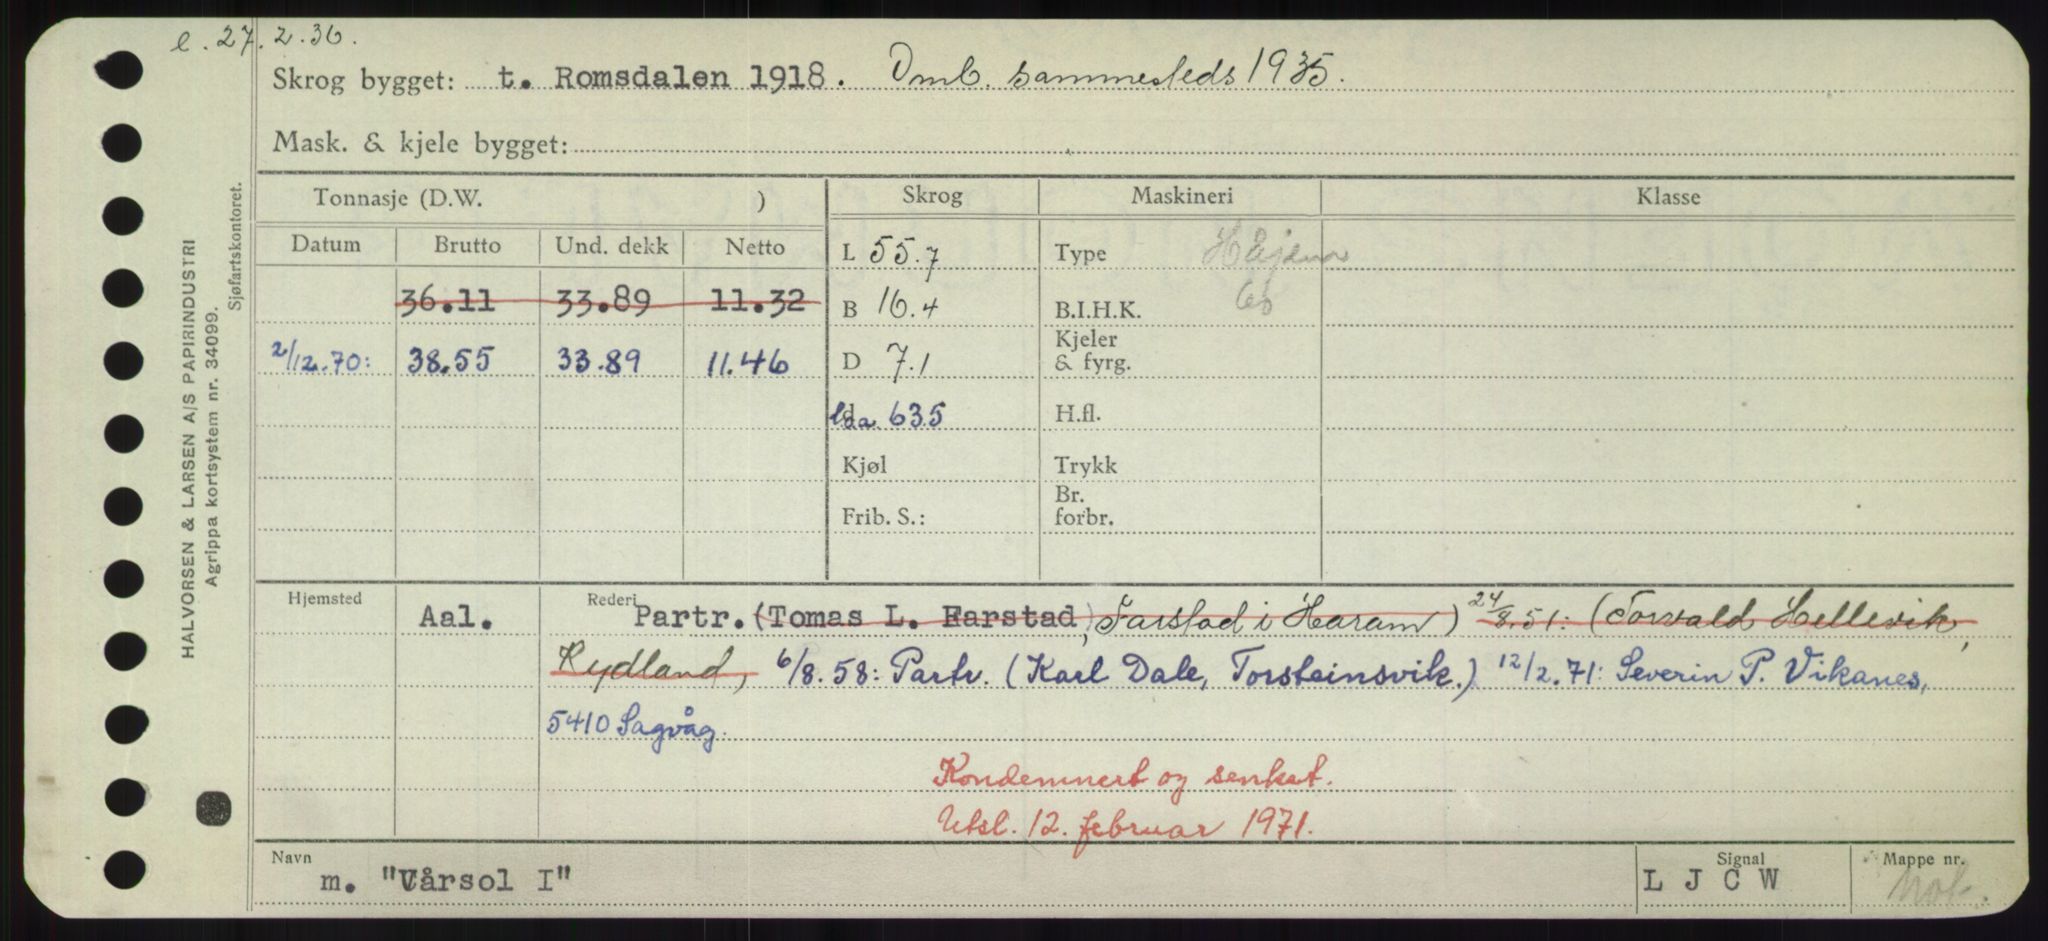 e. 27.2.36.
Skrog bygget: t. Romsdalen 1918. Omb. sammesteds 1935.
Mask. & kjele bygget:
Tonnasje (D.W. ) Skrog Maskineri Klasse
Datum Brutto Und. dekk Netto L 55.7 Type
36.11 33.89 11.32 B 16.4 B.I.H.K.
2/12.70: 38.55 33.89 11.46 D 7.1 Kjeler & fyrg.
l.da. 63.5 H.fl.
Kjøl Trykk
Frib. S.: Br. forbr.
Hjemsted Aal. Rederi Partr. (Tomas L. Farstad, Farstad i Haram) 24/8.51: (Torvald Hellevik,
Rydland, 6/8.58: Partr. (Karl Dale, Torsteinsvik.) 12/2.71: Severin P. Vikanes,
5410 Sagvåg.
Kondemnert og senket.
Utsl. 12. februar 1971.
Navn Signal Mappe nr.
m. "Vårsol I" L J C W
HALVORSEN & LARSEN A/S PAPIRINDUSTRI
Agrippa kortsystem nr. 34099.
Sjøfartskontoret.